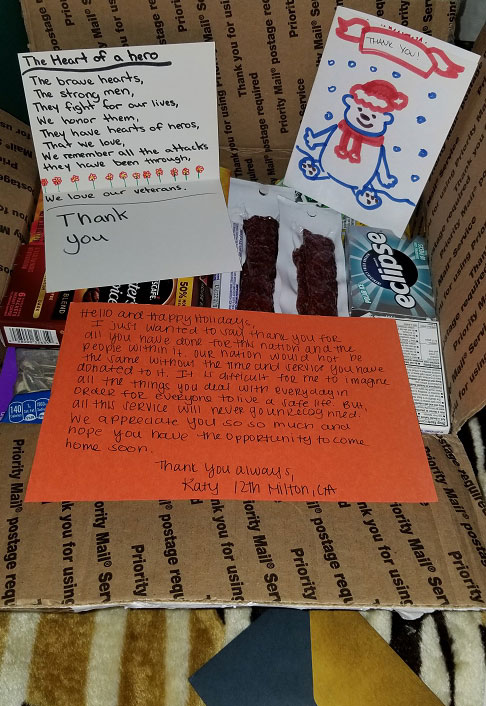 The Heart of a hero
The brave hearts,
The strong men,
They fight for our lives,
We honor them,
They have hearts of heros,
That we love,
We remember all the attacks
they have been through,
We love our veterans.
Thank
you
THANK YOU!
eclipse
Hello and Happy Holidays,
I just wanted to say thank you for
all you have done for this nation and the
people within it. Our nation would not be
the same without the time and service you have
donated to it. It is difficult for me to imagine
all the things you deal with everyday in
order for everyone to live a safe life. But,
all this service will never go unrecognized.
We appreciate you so so much and
hope you have the opportunity to come
home soon.
Thank you always,
Katy 12th Milton, GA
140
Priority Mail
Thank you for using
postage required